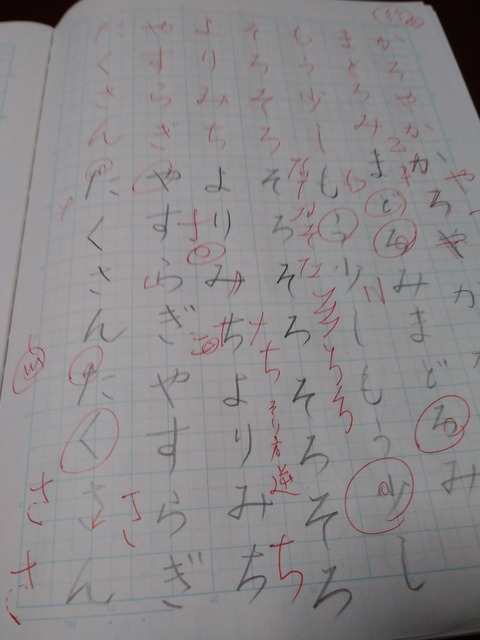 かろやかかろやか
まどろみまどろみまどろみ
もう少しもう少しもう少し
そろそろそろそろそろそろ
ろろ
ち
逆
ち
よりみちよりみちよりみち
やすらぎやすらぎやすらぎ
たくさんたくさんたくさん
さ
さ